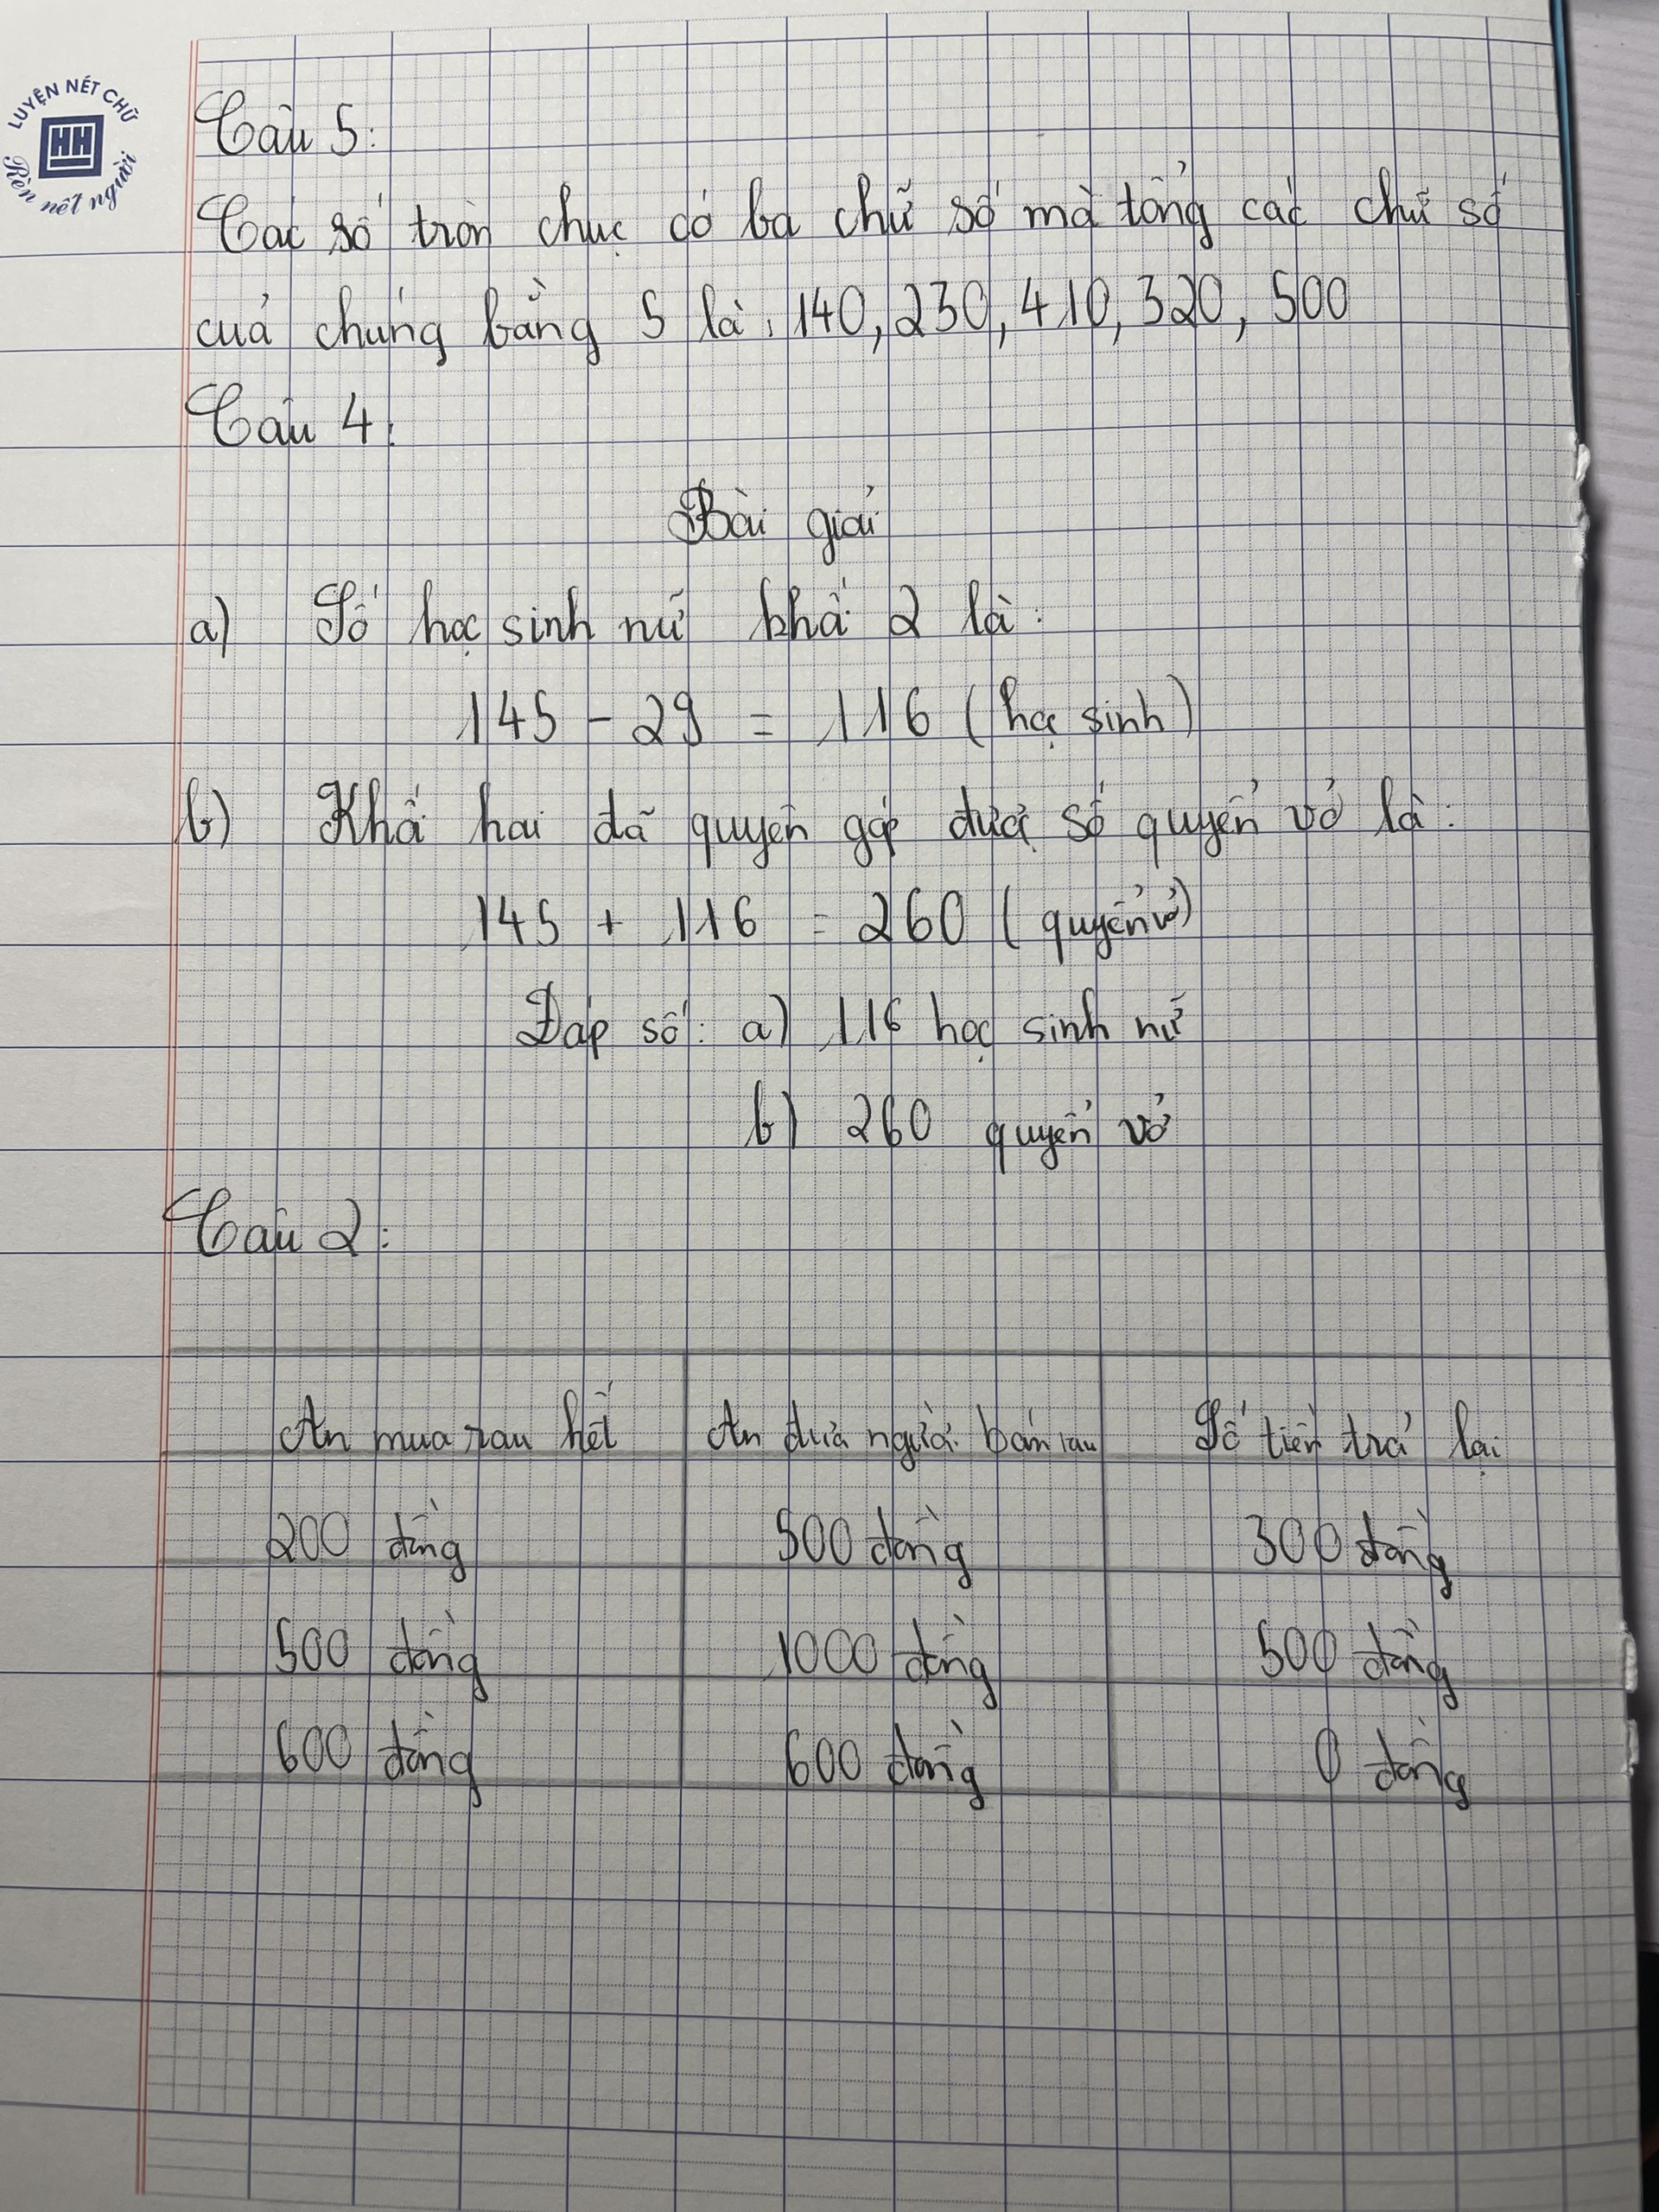 LUYỆN NÉT CHỮ
HH
Rèn nết người
Câu 5:
Các số tròn chục có ba chữ số mà tổng các chữ số
của chúng bằng 5 là: 140, 230, 410, 320, 500
Câu 4:
Bài giải
a) Số học sinh nữ khối 2 là:
145 - 29 = 116 (học sinh)
b) Khối hai đã quyên góp được số quyển vở là:
145 + 116 = 260 (quyển vở)
Đáp số: a) 116 học sinh nữ
b) 260 quyển vở
Câu 2:
An mua rau hết An đưa người bán rau Số tiền trả lại
200 đồng 500 đồng 300 đồng
500 đồng 1000 đồng 500 đồng
600 đồng 600 đồng 0 đồng